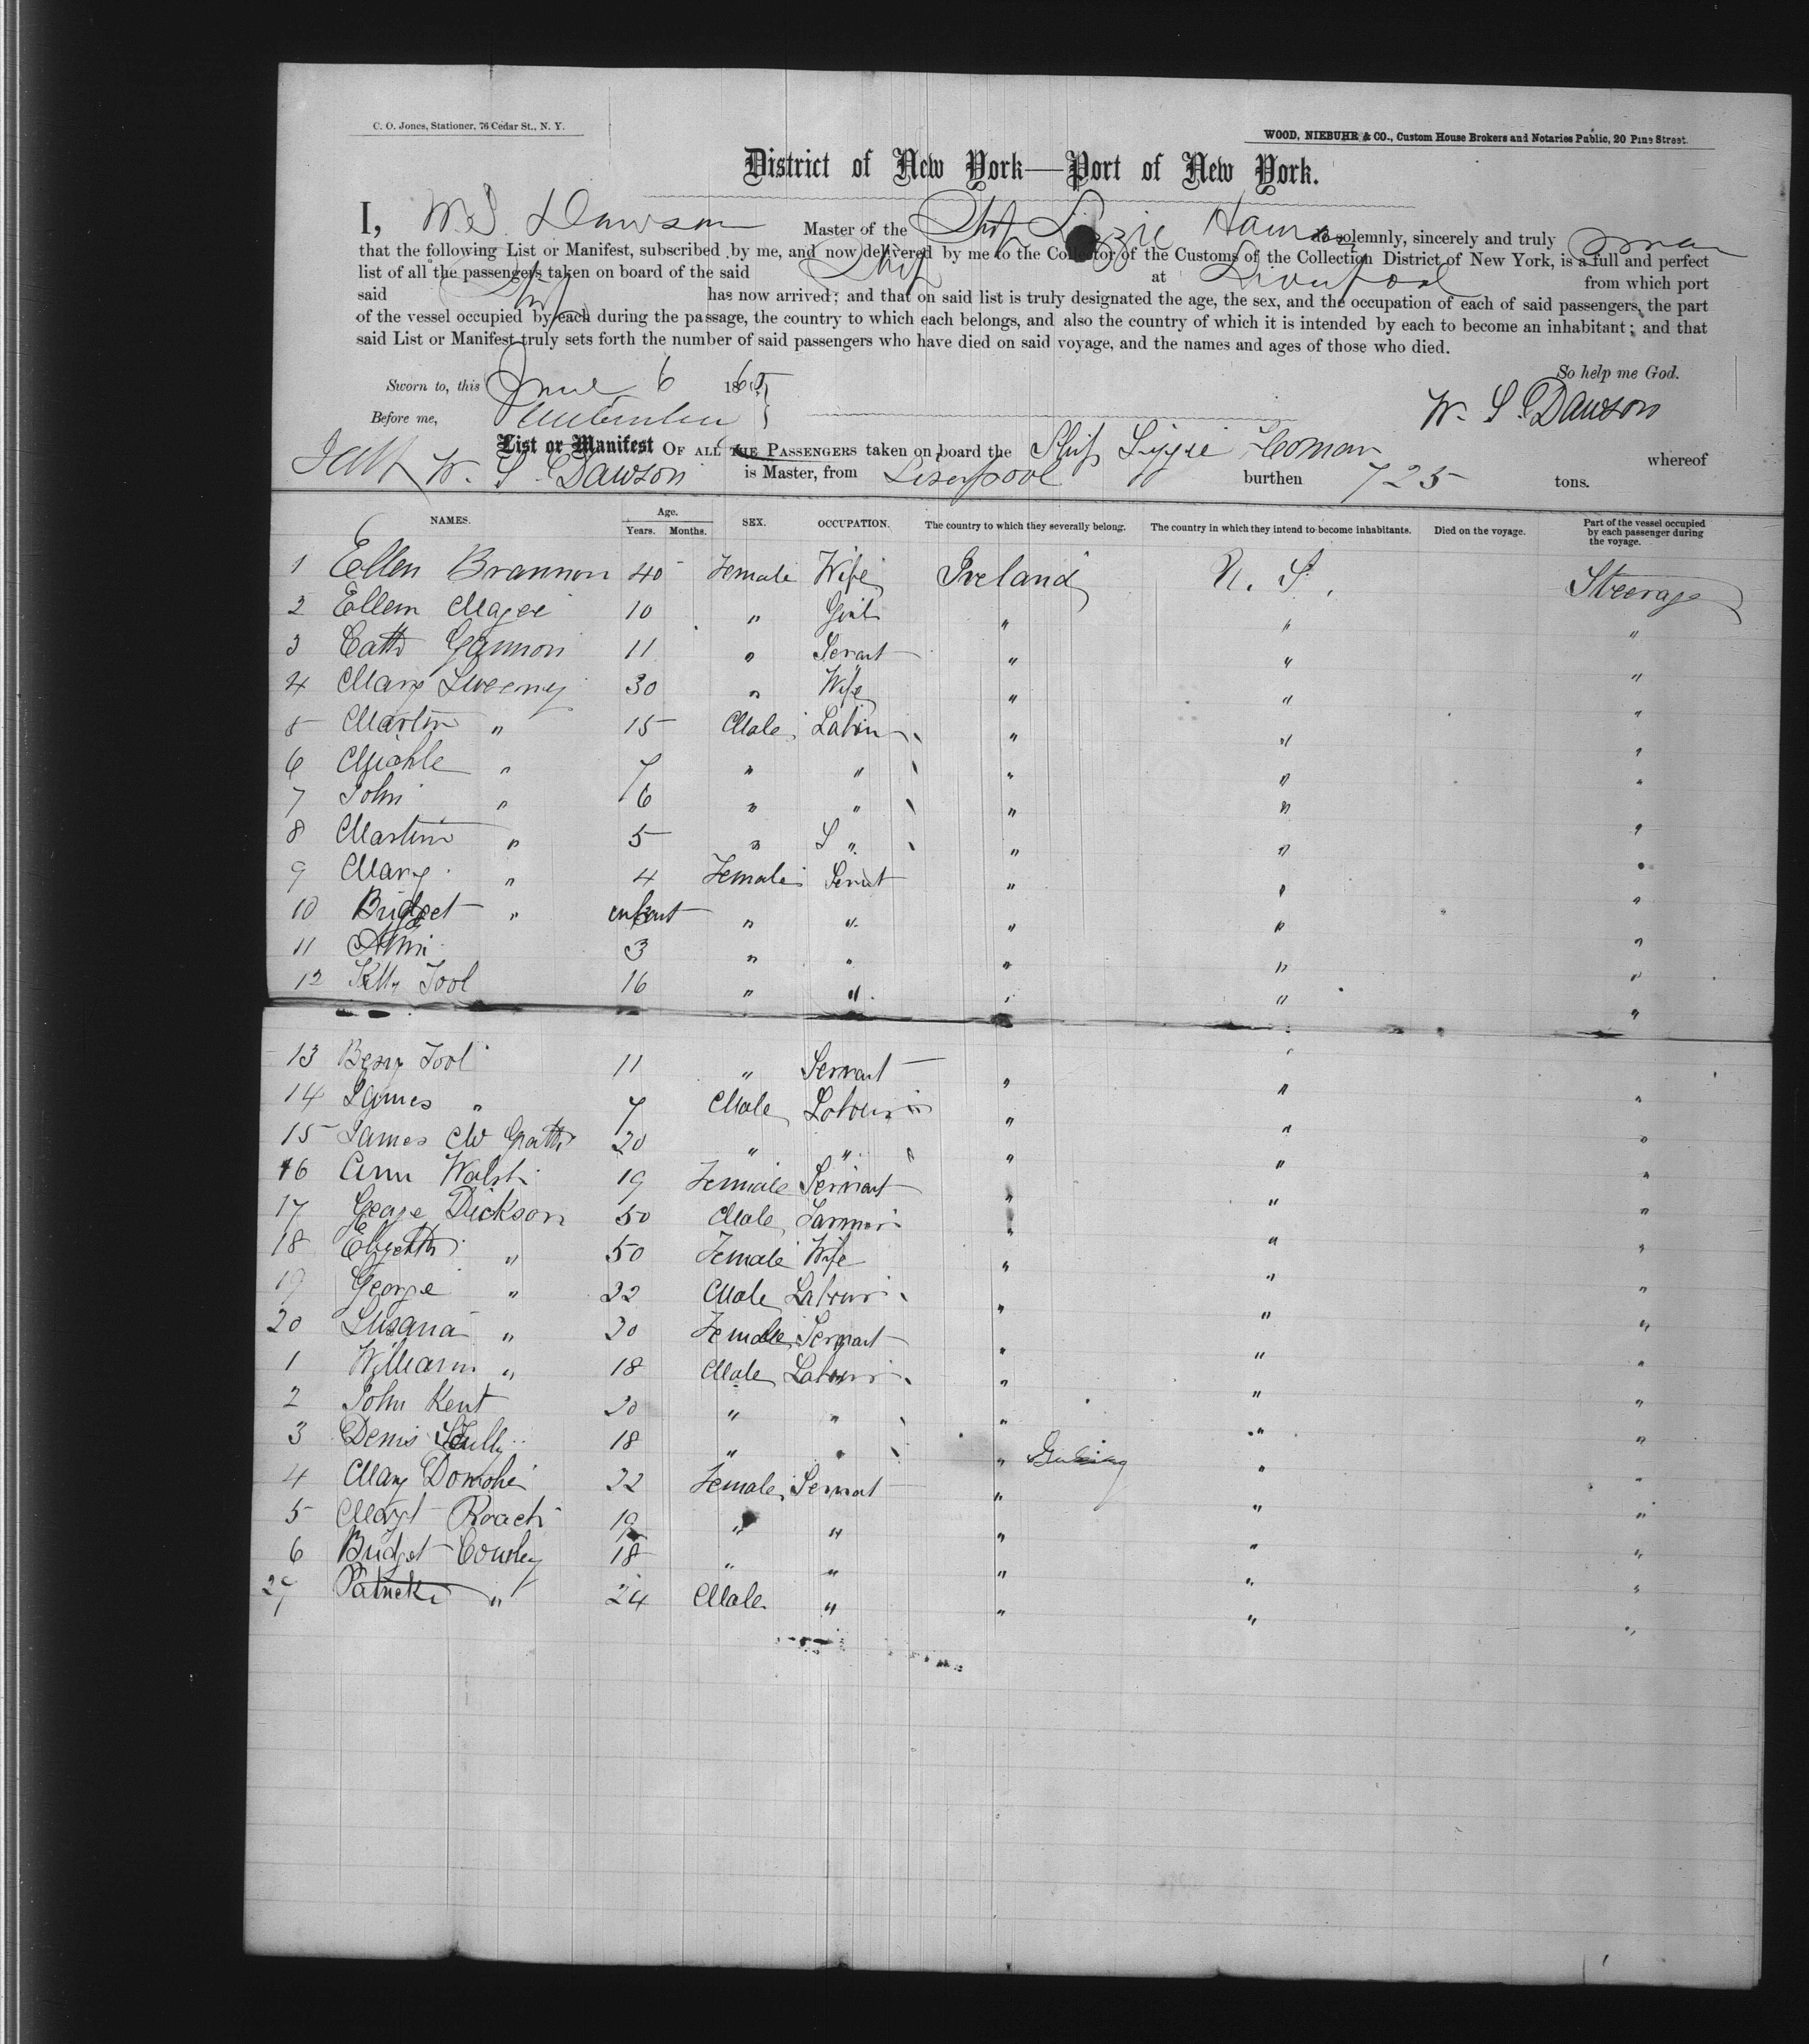 C. O. Jones, Stationer, 76 Cedar St., N. Y.
WOOD, NIEBUHR & CO., Custom House Brokers and Notaries Public, 20 Pine Street.
District of New York—Port of New York.
I, W. S. Dawson Master of the Ship Lizzie Homan do solemnly, sincerely and truly swear
that the following List or Manifest, subscribed by me, and now delivered by me to the Collector of the Customs of the Collection District of New York, is a full and perfect
list of all the passengers taken on board of the said Ship at Liverpool from which port
said Ship has now arrived; and that on said list is truly designated the age, the sex, and the occupation of each of said passengers, the part
of the vessel occupied by each during the passage, the country to which each belongs, and also the country of which it is intended by each to become an inhabitant; and that
said List or Manifest truly sets forth the number of said passengers who have died on said voyage, and the names and ages of those who died.
So help me God.
Sworn to, this June 6 1865
W. S. Dawson
Before me,
List or Manifest OF ALL THE PASSENGERS taken on board the Ship Lizzie Homan whereof
W. S. Dawson is Master, from Liverpool burthen 725 tons.
NAMES. Age. Years. Months. SEX. OCCUPATION. The country to which they severally belong. The country in which they intend to become inhabitants. Died on the voyage. Part of the vessel occupied by each passenger during the voyage.
1 Ellen Brannon 40 Female Wife Ireland U. S. Steerage
2 Ellen Magee 10 " Girl " " "
3 Cath Gannon 11 " Servant " " "
4 Mary Sweeney 30 " Wife " " "
5 Martin " 15 Male Labour " " "
6 Michle " 7 " " " " "
7 John " 6 " " " " "
8 Martin " 5 " " " " "
9 Mary " 4 Female Servt " " "
10 Bridget " infant " " " " "
11 Ann 3 " " " " "
12 Kitty Tool 16 " " " " "
13 Bessy Tool 11 " Servant " " "
14 James " 7 Male Labour " " "
15 James Mc Grath 20 " " " " "
16 Ann Walsh 19 Female Servant " " "
17 George Dickson 50 Male Farmer " " "
18 Elizabth " 50 Female Wife " " "
19 George " 22 Male Labour " " "
20 Susana " 20 Female Servant " " "
1 William " 18 Male Labour " " "
2 John Kent 20 " " " " "
3 Denis Scully 18 " " " " "
4 Mary Donohe 22 Female Servant " " "
5 Margt Roach 19 " " " " "
6 Bridget Cowley 18 " " " " "
27 Patrick " 24 Male " " " "